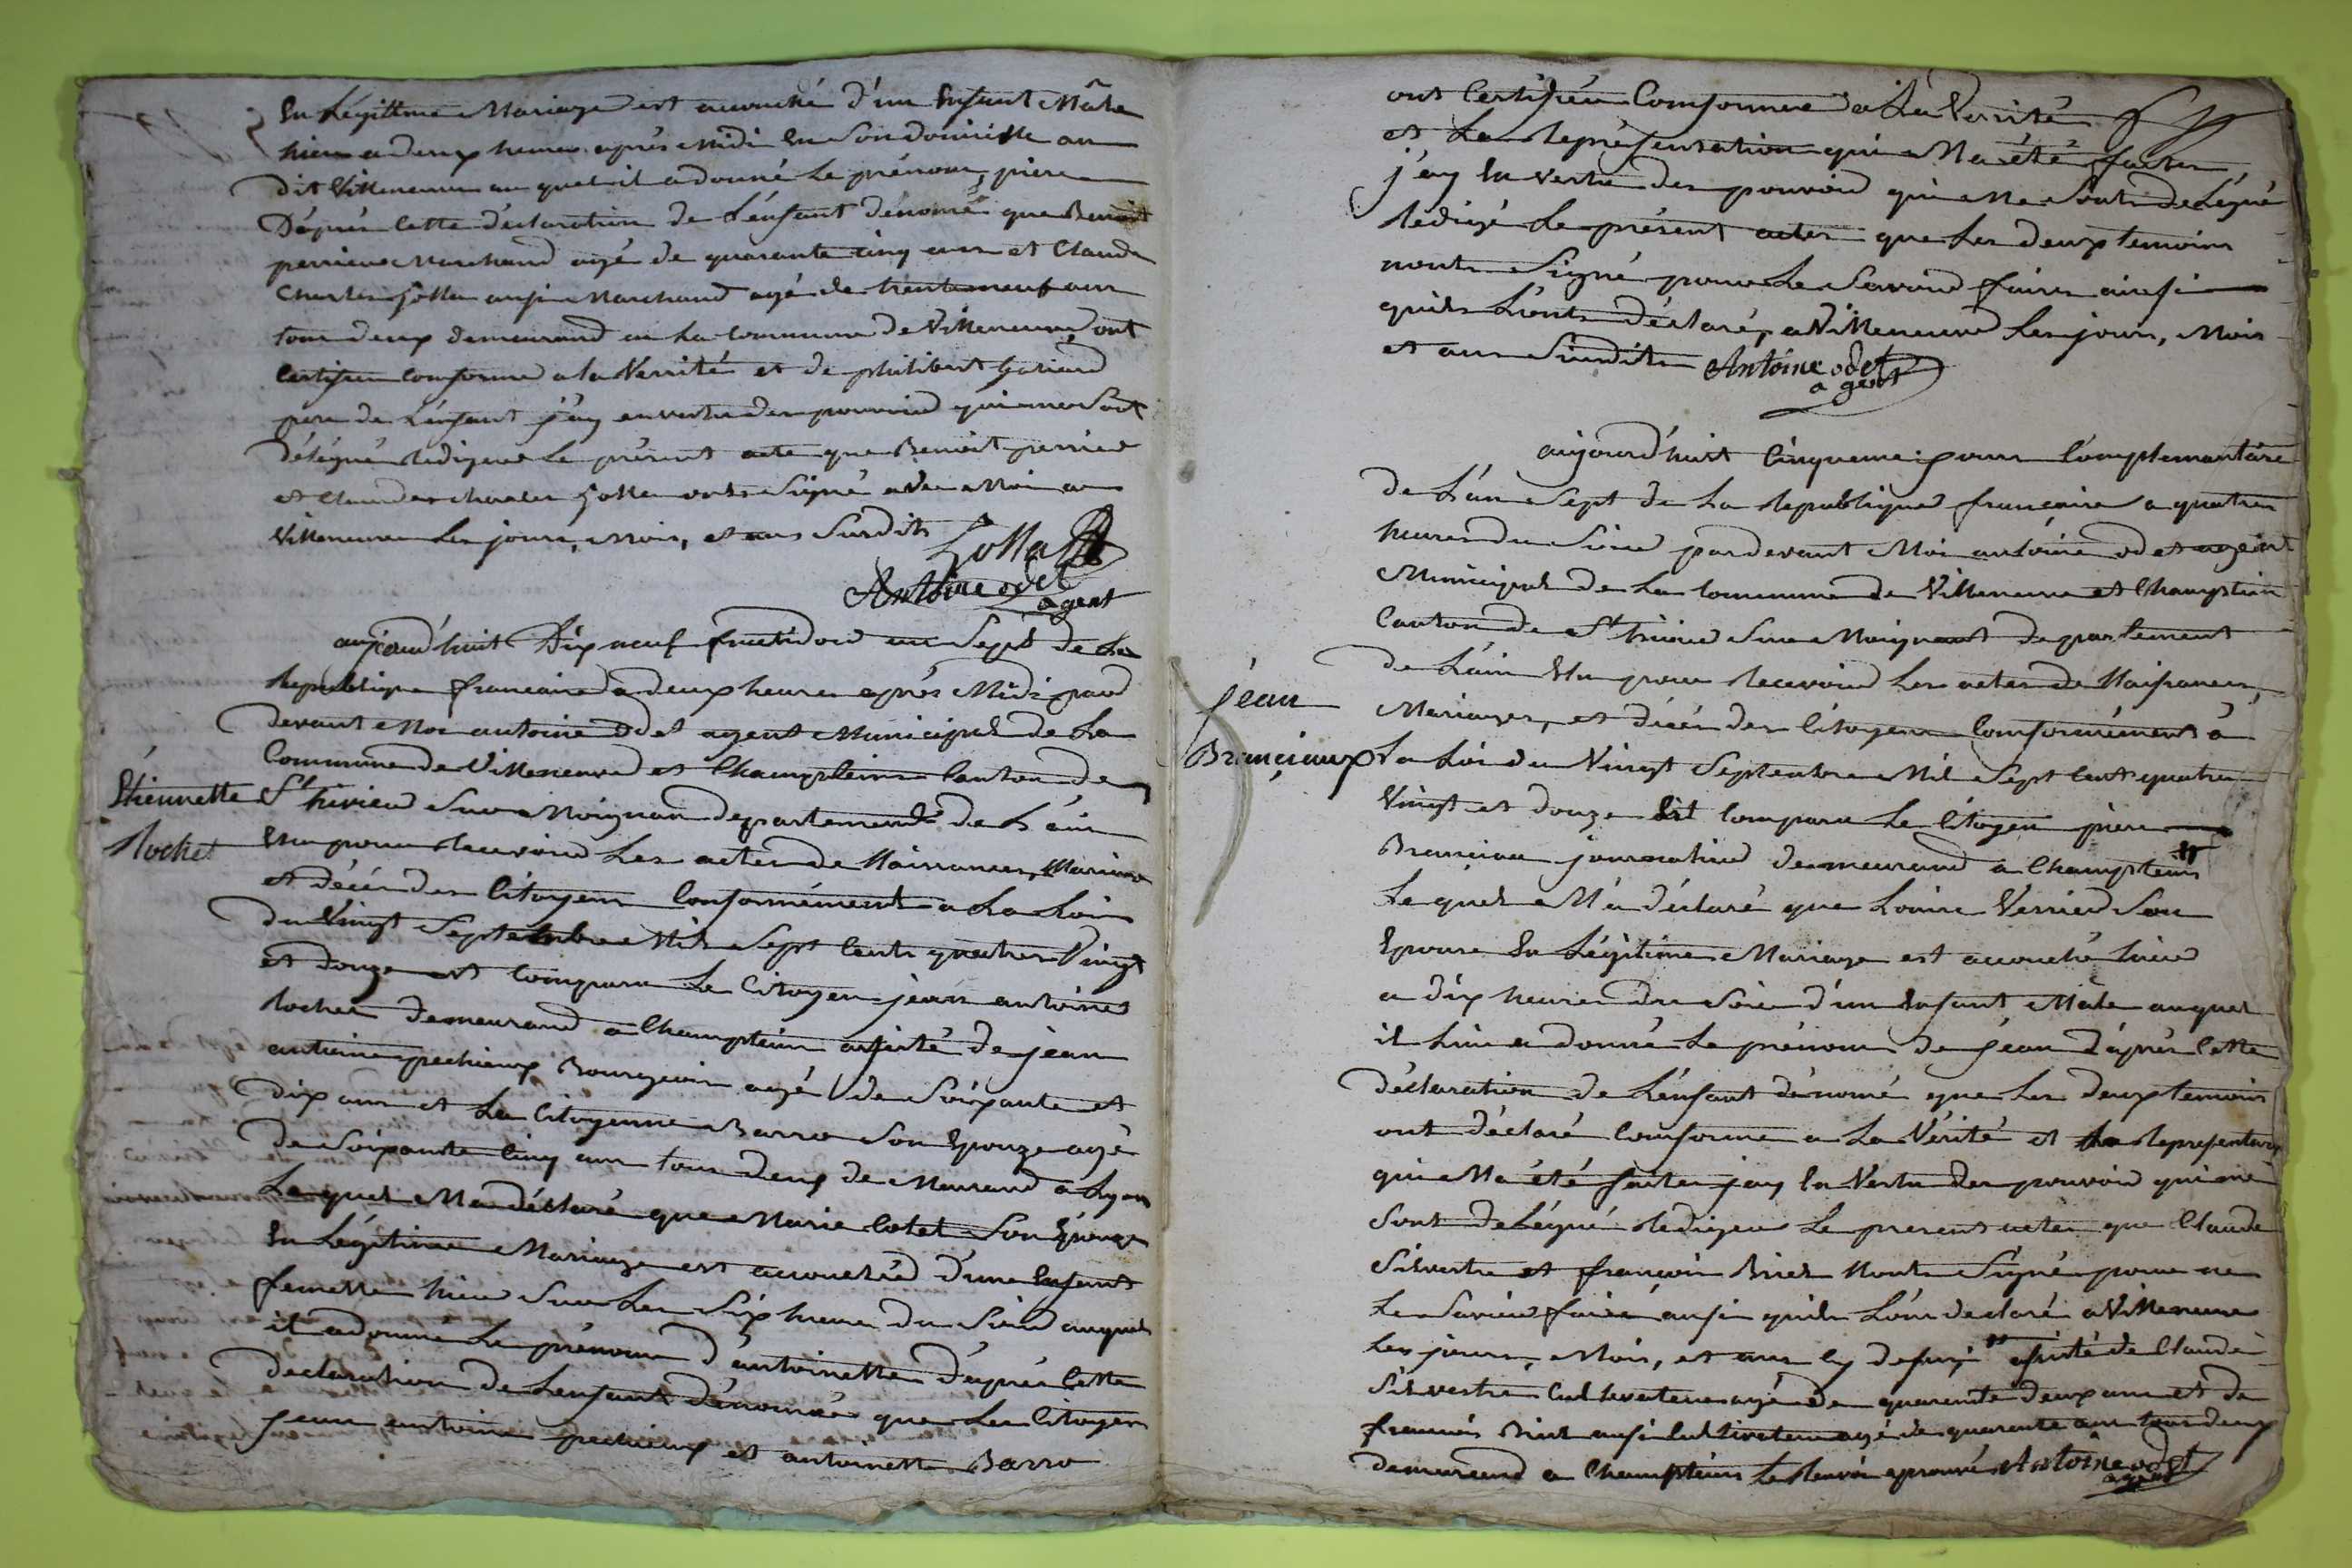 En Légittime Mariage est accouché d'un Enfant Mâle
hier a deux heures après Midi En Son domicille au
dit Villeneuve au quel il a donné Le prénom, piere
D'éprés Cette d'éclaration de L'énfant dénomé que Benoit
perrier Marchand agé de quarante cinq ans et Claude
Charles Jolla ausi Marchand agé de trente neuf ans
tous deux demeurand en La Commune de Villeneuve, ont
Certifieu Conforme a la Verrité et de philibert
pere de L'énfant j'ay en vertu des pouvoird qui me sont
délégué Redigeré Le présent acte que Benoit perrier
et Claudes Charles Jolla onts Signé avec Moi a
Villeneuve Les jours, Mois, et ans Surdits
Antoine odet
agent
aujourd'huit Dix neuf fructidord an Sept de La
Republique francaise a deux heures aprés Midi pard
devant Moi antoine Odet agent Municipal de La
Commune de Villeneuved et Champtein Canton de
Etiennette St trivierd Sur Moignan departement de L'ain
Rochet Elu pour Recevoird Les actes de Naissances, Mariage
et décés des Citoyens Conformément a La Loi
du Vingt Septembre Mil Sept Cents quatres Vingt
et douze est Comparu Le Citoyen jean antoine
Rochet demeurand a Champtein asisté de jean
antoine pechieux Bourgeoin agé de Soixante et
dix ans et La Citoyenne Barro Son Epouze agé
de Soixante Cinq ans tous deux de Meurand a Lyon
Le quel M'a déclaré que Marie Cotet Son Epouze
En Légitime Mariage est accouchéd d'une Enfant
femelle hier Sur Les Six heures du Soird auquel
il a donné Le prénom d'antoinette d'éprés Cette
declaration de Lenfant dénomé que Les Citoyen
Jean antoine pechieux et antoinette Barro
ont Certifiéu Conforme a La Verrité
et La Représentation qui M'a été faites
j'ay En vertu des pouvoird qui Me Sont deLégué
Redigé Le présent actes que Les deux temoins
nonts Signé pour Le Savoird faire ainsi
quils L'onts déclaré, a Villeneuve Les jours, Mois
et ans Surdits Antoine odet
agent
aujourd'huit Cinquieme jours Complemantaire
de L'an Sept de La Republique francaise a quatres
heures du Soird pardevant Moi antoine odet agent
Municipal de La Commune de Villeneuve et Champtein
Canton de St trivierd Sur Moignant departement
de L'ain Elu pour Recevoird Les actes de Naissances,
Jean Mariages, et décés des Citoyens Conformément à
Branciaux La Loi du Vingt Septembre Mil Sept Cent quatres
Vingt et douze Est Comparu Le Citoyen piere
Branciau journalierd demeurand a Champtein
Le quel M'a déclaré que Louise Verrierd Son
Epouse En Légitime Mariage est accouché hierd
a dix heures du Soir d'un Enfant Mâle auquel
il Lui a donné Le prénom de Jean d'éprés Cette
déclaration de L'énfant dénomé que Les deux temoins
ont déclaré Conforme a La Vérité et La Representation
qui M'a été faites jay En Vertu des pouvoird qui me
Sont deLégué Redigeré Le present actes que Claude
Silvestre et francois Briel Nonts Signé pour ne
Le Savoir faire ausi quils L'ont declaré a Villeneuve
Les jours, Mois, et ans asisté de Claude
Silvestre Cultevateur agé de quarente deux ans et de
francois Briel ausi Cultivateur agé de quarente ans tous deux
demeurand a Champtein Le Renvoi aprouvé Antoine odet
agent